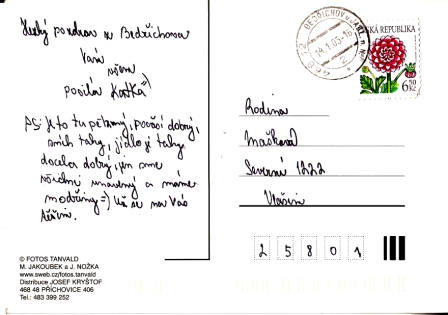 Hezký pozdrav z Bedřichova
Vám
všem
posílá Katka =)
PS: Je to tu pěkný, počasí dobrý,
sních taky, jídlo je taky
docela dobrý, jen sme
všichni unavený a máme
modřiny =) Už se na Vás
těším.
BEDŘICHOV U JABL. N. NIS.
14.1.03-16
468 12
2
ČESKÁ REPUBLIKA
6,50
Kč
Rodina
Maškova
Severní 1222
Vlašim
25801
© FOTOS TANVALD
M. JAKOUBEK a J. NOŽKA
www.sweb.cz/fotos.tanvald
Distribuce JOSEF KRYŠTOF
468 48 PŘÍCHOVICE 406
Tel.: 483 399 252